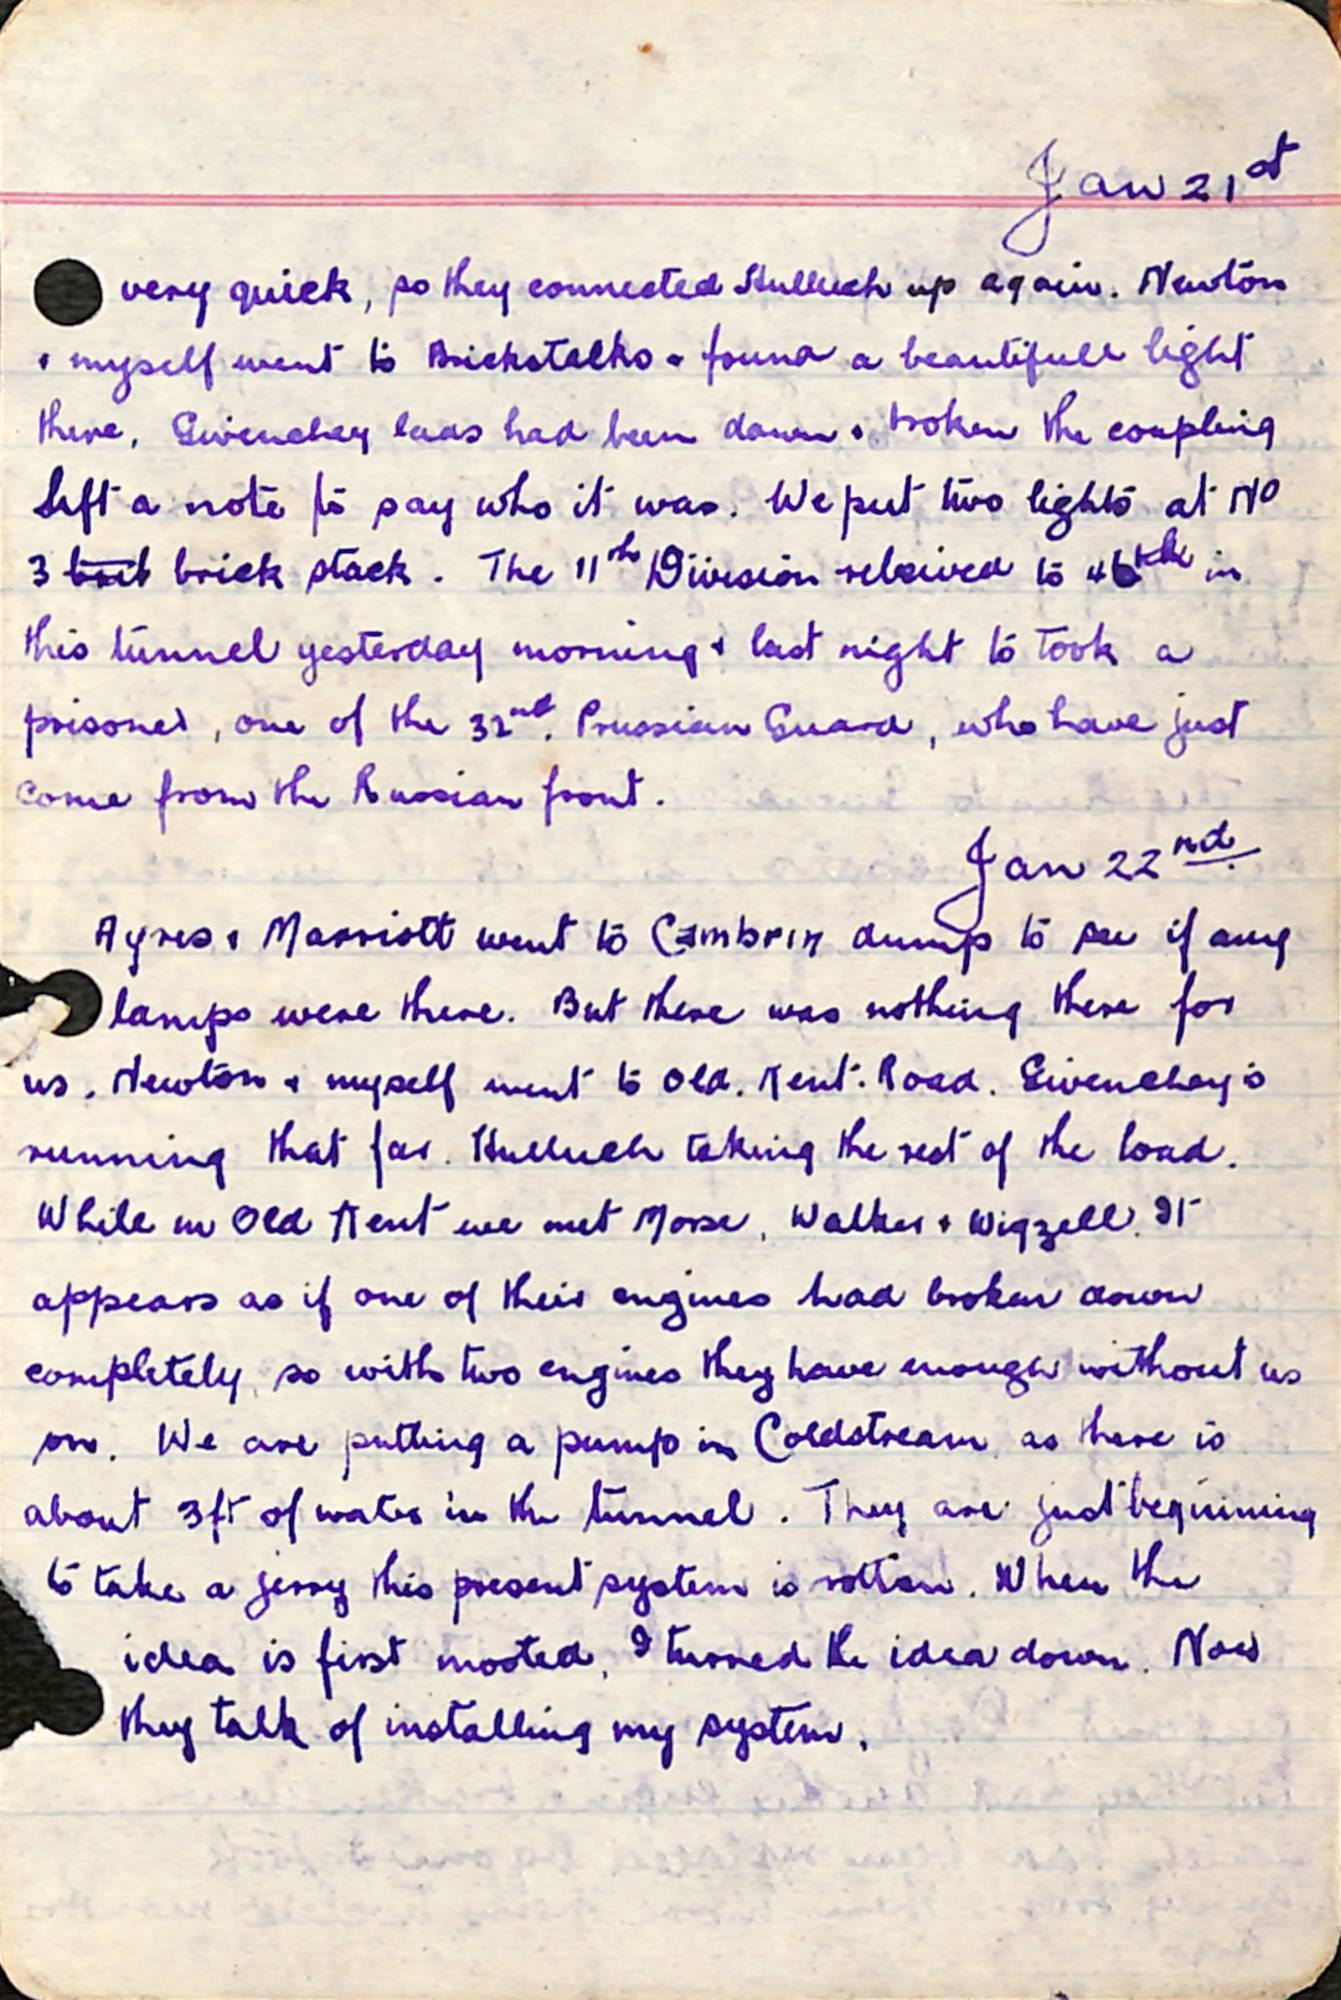 Jan 21st
very quick, so they connected Hulluch up again. Newton
& myself went to Brickstalks & found a beautifull light
there, Givenchey lads had been down & broken the coupling
left a note to say who it was. We put two lights at No
3 brick stack. The 11th Division releived to 46th in
this tunnel yesterday morning & last night to took a
prisoner, one of the 32nd. Prussian Guard, who have just
come from the Russian front.
Jan 22nd
Ayres & Marriott went to Cambrin dump to see if any
lamps were there. But there was nothing there for
us. Newton & myself went to Old. Kent. Road. Givenchey is
running that far. Hulluch taking the rest of the load.
While in Old Kent we met Morse, Walker & Wigzell. It
appears as if one of their engines had broken down
completely, so with two engines they have enough without us
on. We are putting a pump in Coldstream as there is
about 3ft of water in the tunnel. They are just beginning
to take a jerry this present system is rotten. When the
idea is first mooted, I turned the idea down. Now
they talk of installing my system.